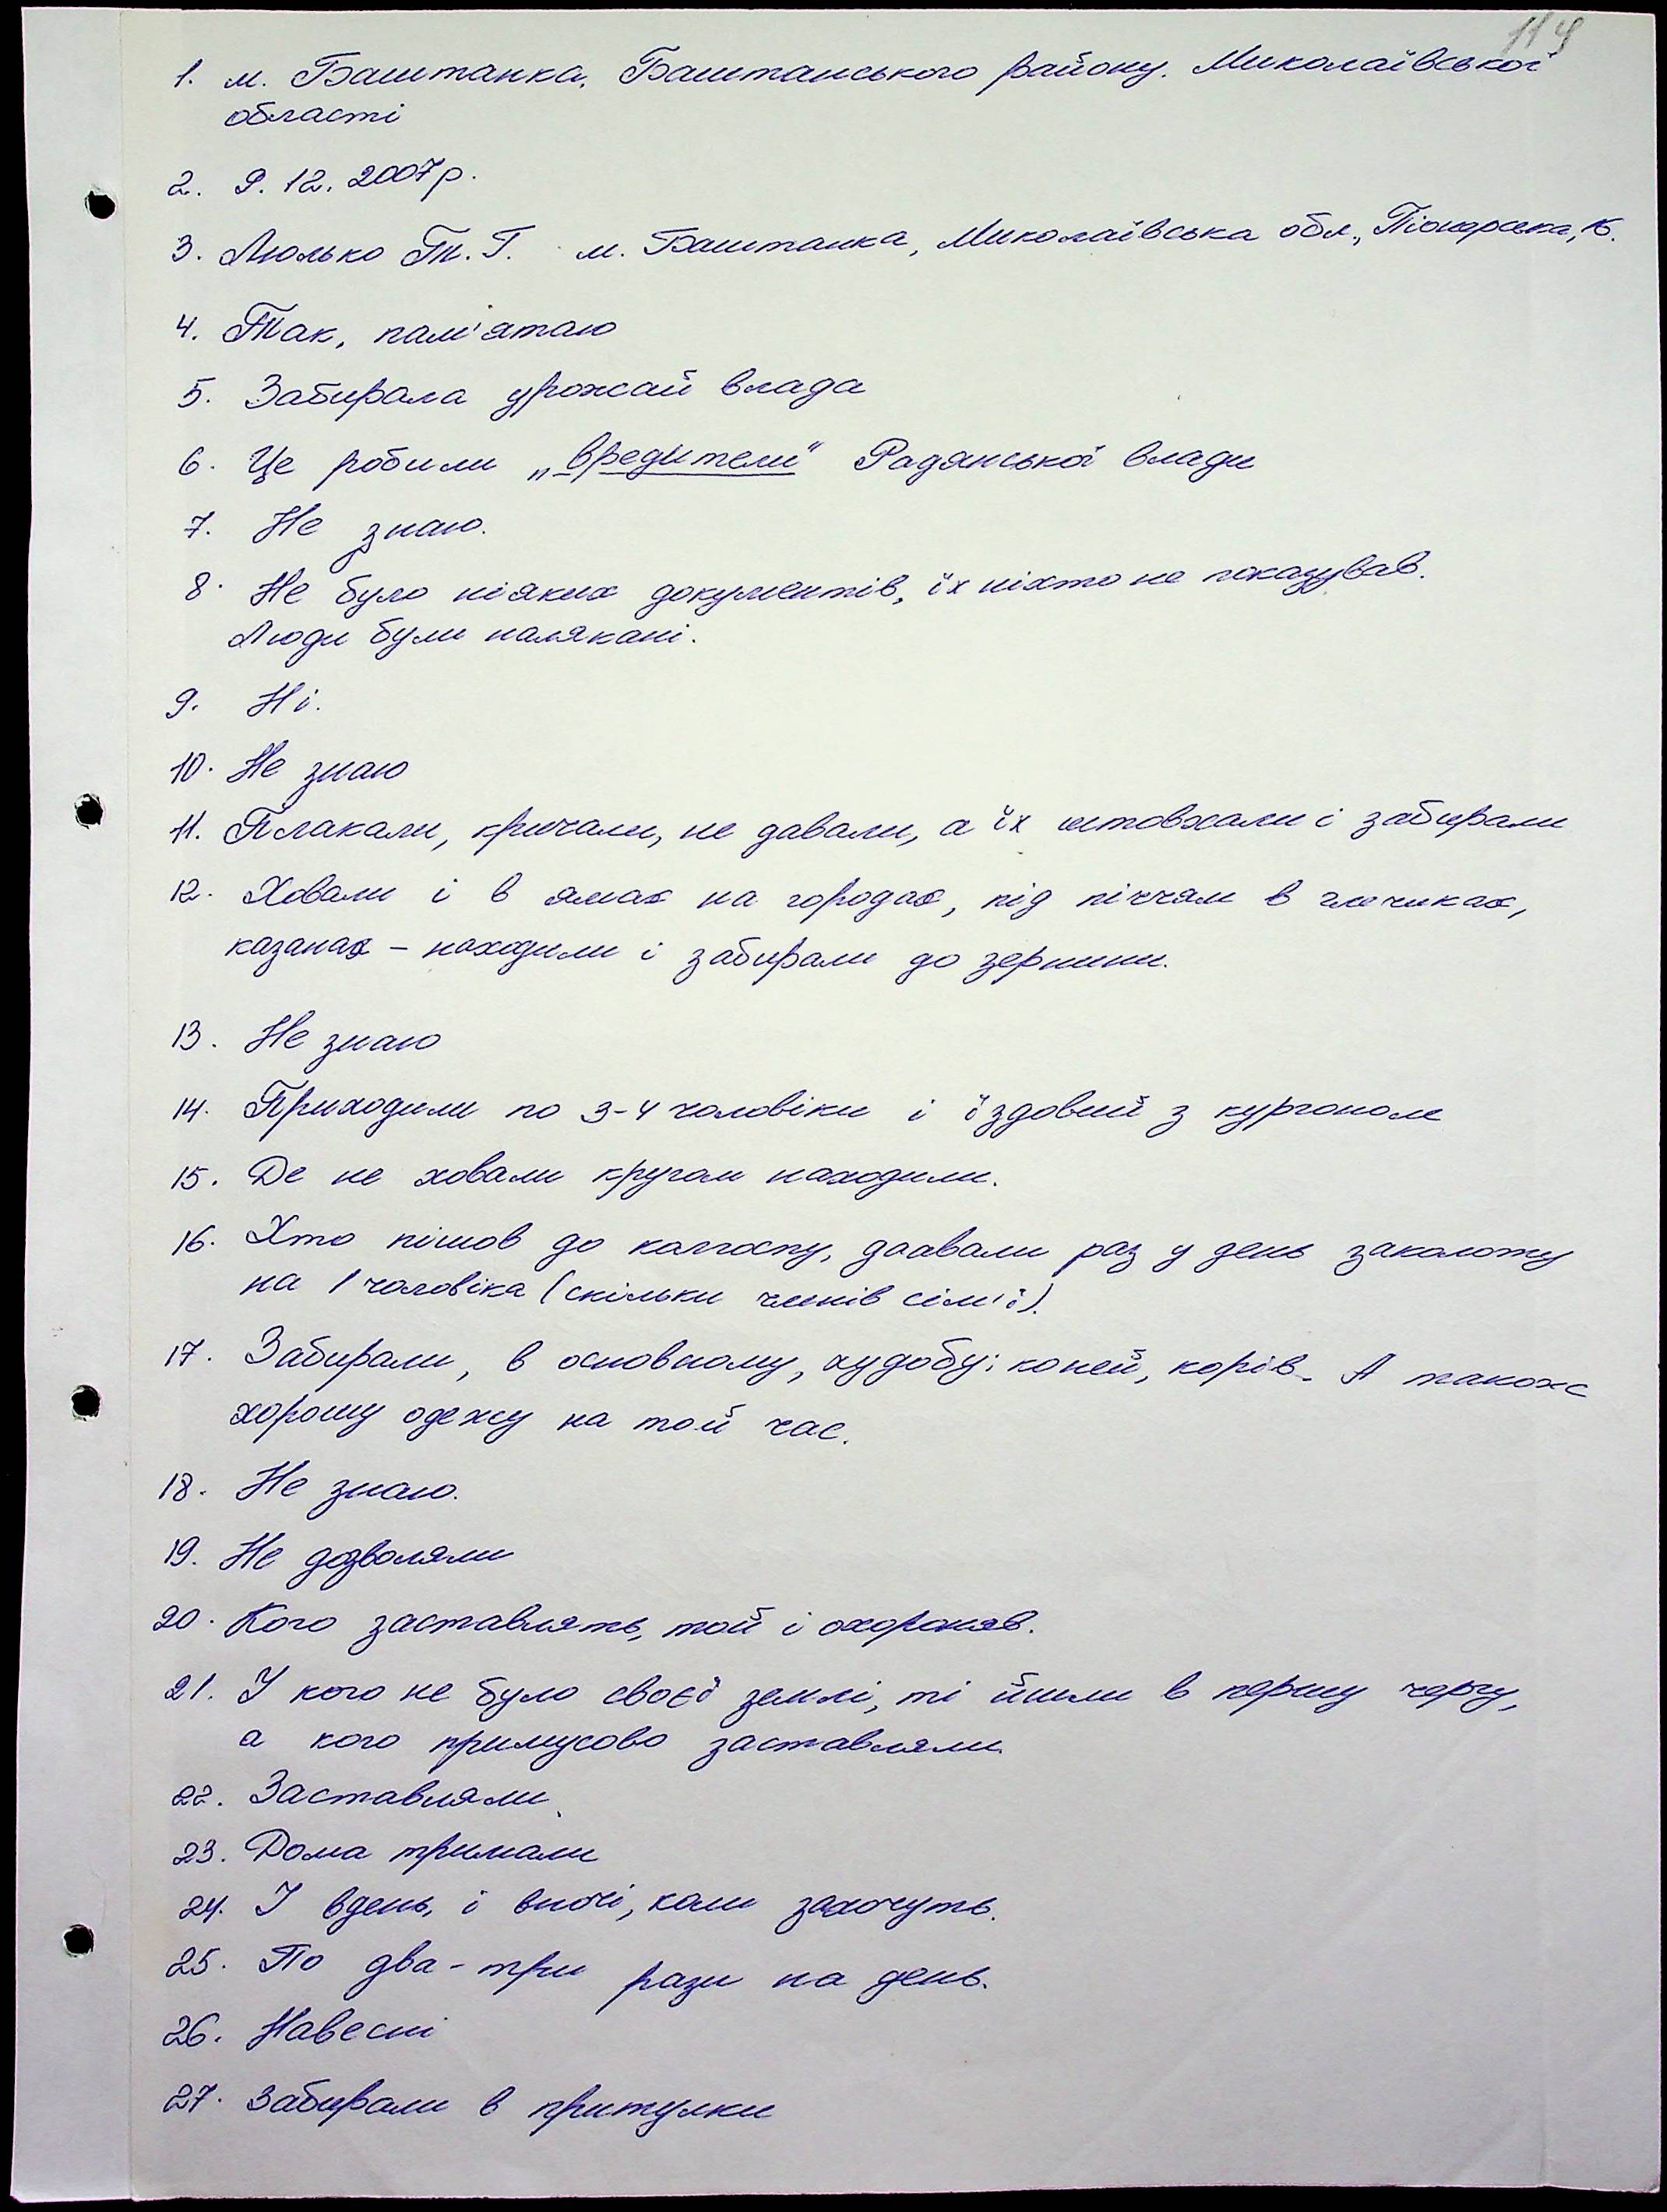 114
1. м. Баштанка, Баштанського району. Миколаївської
області
2. 9. 12. 2007р.
3. Люлько Г. м. Баштанка, Миколаївська обл.,
4. Так, пам'ятаю
5. Забирала урожай влада
6. Це робили „вредители" Радянської влади
7. Не знаю.
8. Не було ніяких документів, їх ніхто не показував.
Люди були налякані.
9. Ні.
10. Не знаю
11. Плакали, кричали, не давали, а їх штовхали і забирали
12. Ховали і в ямах на городах, під піччям в глечиках,
казанах – находили і забирали до зернини.
13. Не знаю
14. Приходили по 3-4 чоловіки і їздовий з кургоном
15. Де не ховали кругом находили.
16. Хто пішов до колгоспу, даавали раз у день заколоту
на 1 чоловіка (скільки членів сім'ї).
17. Забирали, в основному, худобу: коней, корів. А також
хорошу одежу на той час.
18. Не знаю.
19. Не дозволяли
20. Кого заставлять, той і охороняв.
21. У кого не було своєї землі, ті йшли в першу чергу,
а кого примусово заставляли.
22. Заставляли.
23. Дома тримали
24. І вдень, і вночі, коли захочуть.
25. По два-три рази на день.
26. Навесні
27. Забирали в притулки